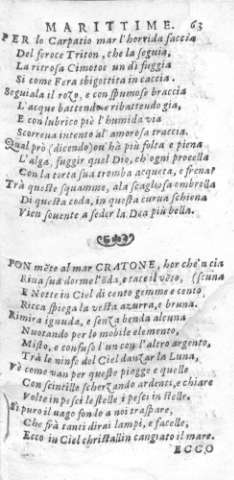 MARITTIME. 63
PER lo Carpatio mar l'horrida faccia
Del feroce Triton, che la seguia,
La ritrosa Cimotoe un dì fuggia
Si come Fera sbigottita in caccia.
Seguiala il rozo, e con spumose braccia
L'acque battendo e ribattendo gia,
E con lubrico piè l'humida via
Scorreva intento al'amorosa traccia.
Qual prò (dicendo) ov'hà più folta e piena
L'alga, fuggir quel Dio, ch'ogni procella
Con la torta sua tromba acqueta, e frena?
Trà queste squamme, ala scagliosa ombrella
Di questa coda, in questa curva schiena
Vien sovente a seder la Dea più bella.
PON mẽte al mar CRATONE, hor che'n cia
Riva sua dorme l'õda, e tace il vẽto, (scuna
E Notte in Ciel di cento gemme e cento
Ricca spiega la vesta azurra, e bruna.
Rimira ignuda, e senza benda alcuna
Nuotando per lo mobile elemento,
Misto, e confuso l'un con l'altro argento,
Trà le ninfe del Ciel danzar la Luna,
Vè come van per queste piagge e quelle
Con scintille scherzando ardenti, e chiare
Volte in pesci le stelle i pesci in stelle.
Sì puro il vago fondo a noi traspare,
Che frà tanti dirai lampi, e facelle,
Ecco in Ciel christallin cangiato il mare.
ECCO